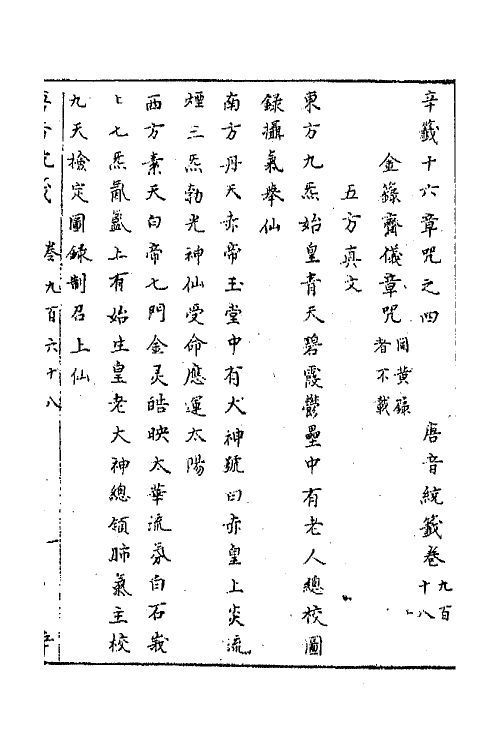 辛籤十六章咒之四　唐音統籤卷九百
金籙齋儀章咒同黄籙者不載
五方真文
東方九炁始皇青天碧霞鬱壘中有老人總校圖
錄攝氣舉仙
南方丹天赤帝玉堂中有大神號曰赤皇上炎流
煙三炁勃光神仙受命應運太陽
西方素天白帝七門金灵皓映太華流氛白石峩
七炁氤氳上有始生皇老大神總領肺氣主校
九天檢定圖錄制召上仙
卷九百六十八